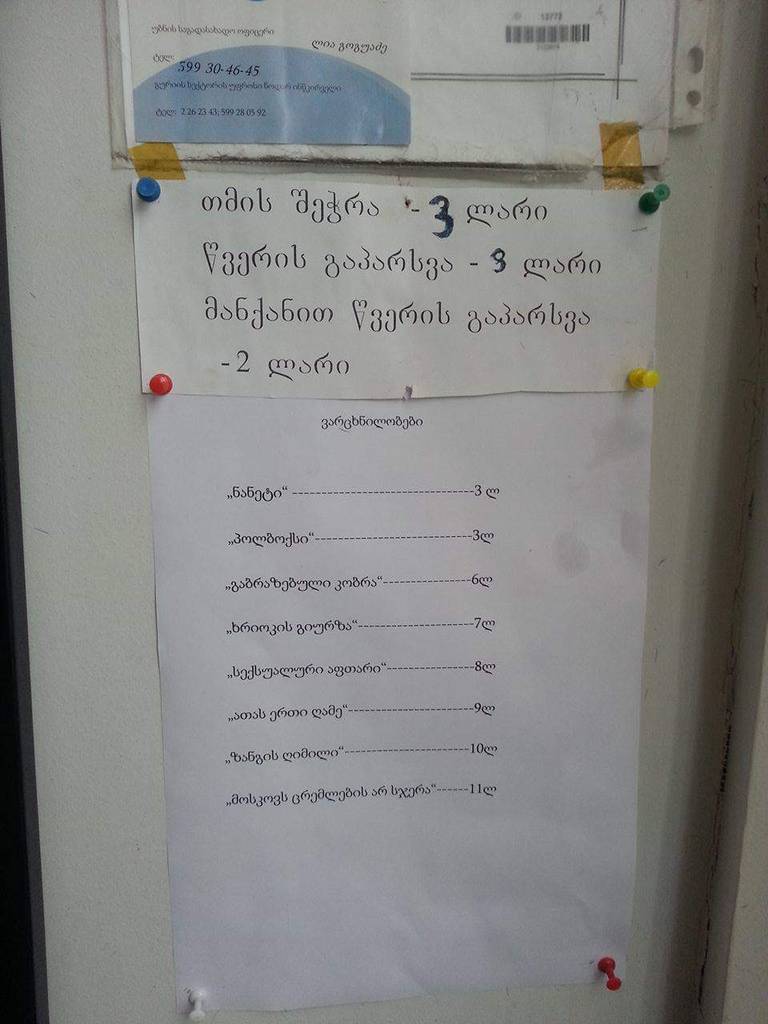 უბნის საგადასახადო ოფიცერი
ლია გოგუაძე
ტელ: 599 30-46-45
გურიის სექტორის უფროსი ნოდარ ინწკირველი
ტელ: 2 26 23 43; 599 28 05 92
13773
თმის შეჭრა - 3 ლარი
წვერის გაპარსვა - 3 ლარი
მანქანით წვერის გაპარსვა
-2 ლარი
ვარცხნილობები
„ნანეტი“ -------------------------------3 ლ
„პოლბოქსი“---------------------------3ლ
„გაბრაზებული კობრა“---------------6ლ
„ხრიოკის გიურზა“--------------------7ლ
„სექსუალური აფთარი“---------------8ლ
„ათას ერთი ღამე“---------------------9ლ
„ზანგის ღიმილი“---------------------10ლ
„მოსკოვს ცრემლების არ სჯერა“------11ლ